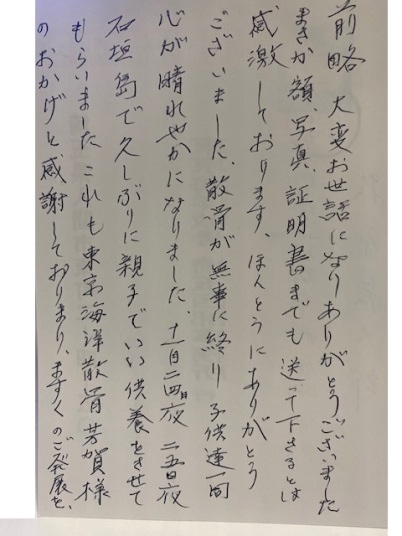 前略 大変お世話になりありがとうございました
まさか額、写真、証明書までも送って下さるとは
感激しております、ほんとうにありがとう
ございました、散骨が無事に終り子供達一同
心が晴れやかになりました、十一月二四日夜 二五日夜
石垣島で久しぶりに親子でいい供養をさせて
もらいました これも東京海洋散骨芳賀様
のおかげと感謝しておりまり、ますくのご発展を、